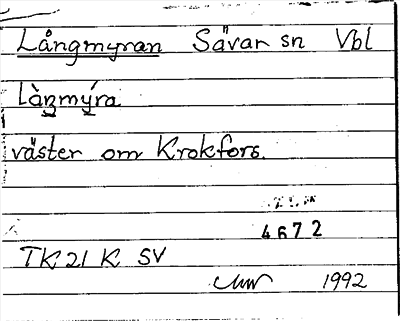 Långmyran Sävar sn Vbl
làŋmýra
väster om Krokfors.
4672
TK 21 K SV
1992